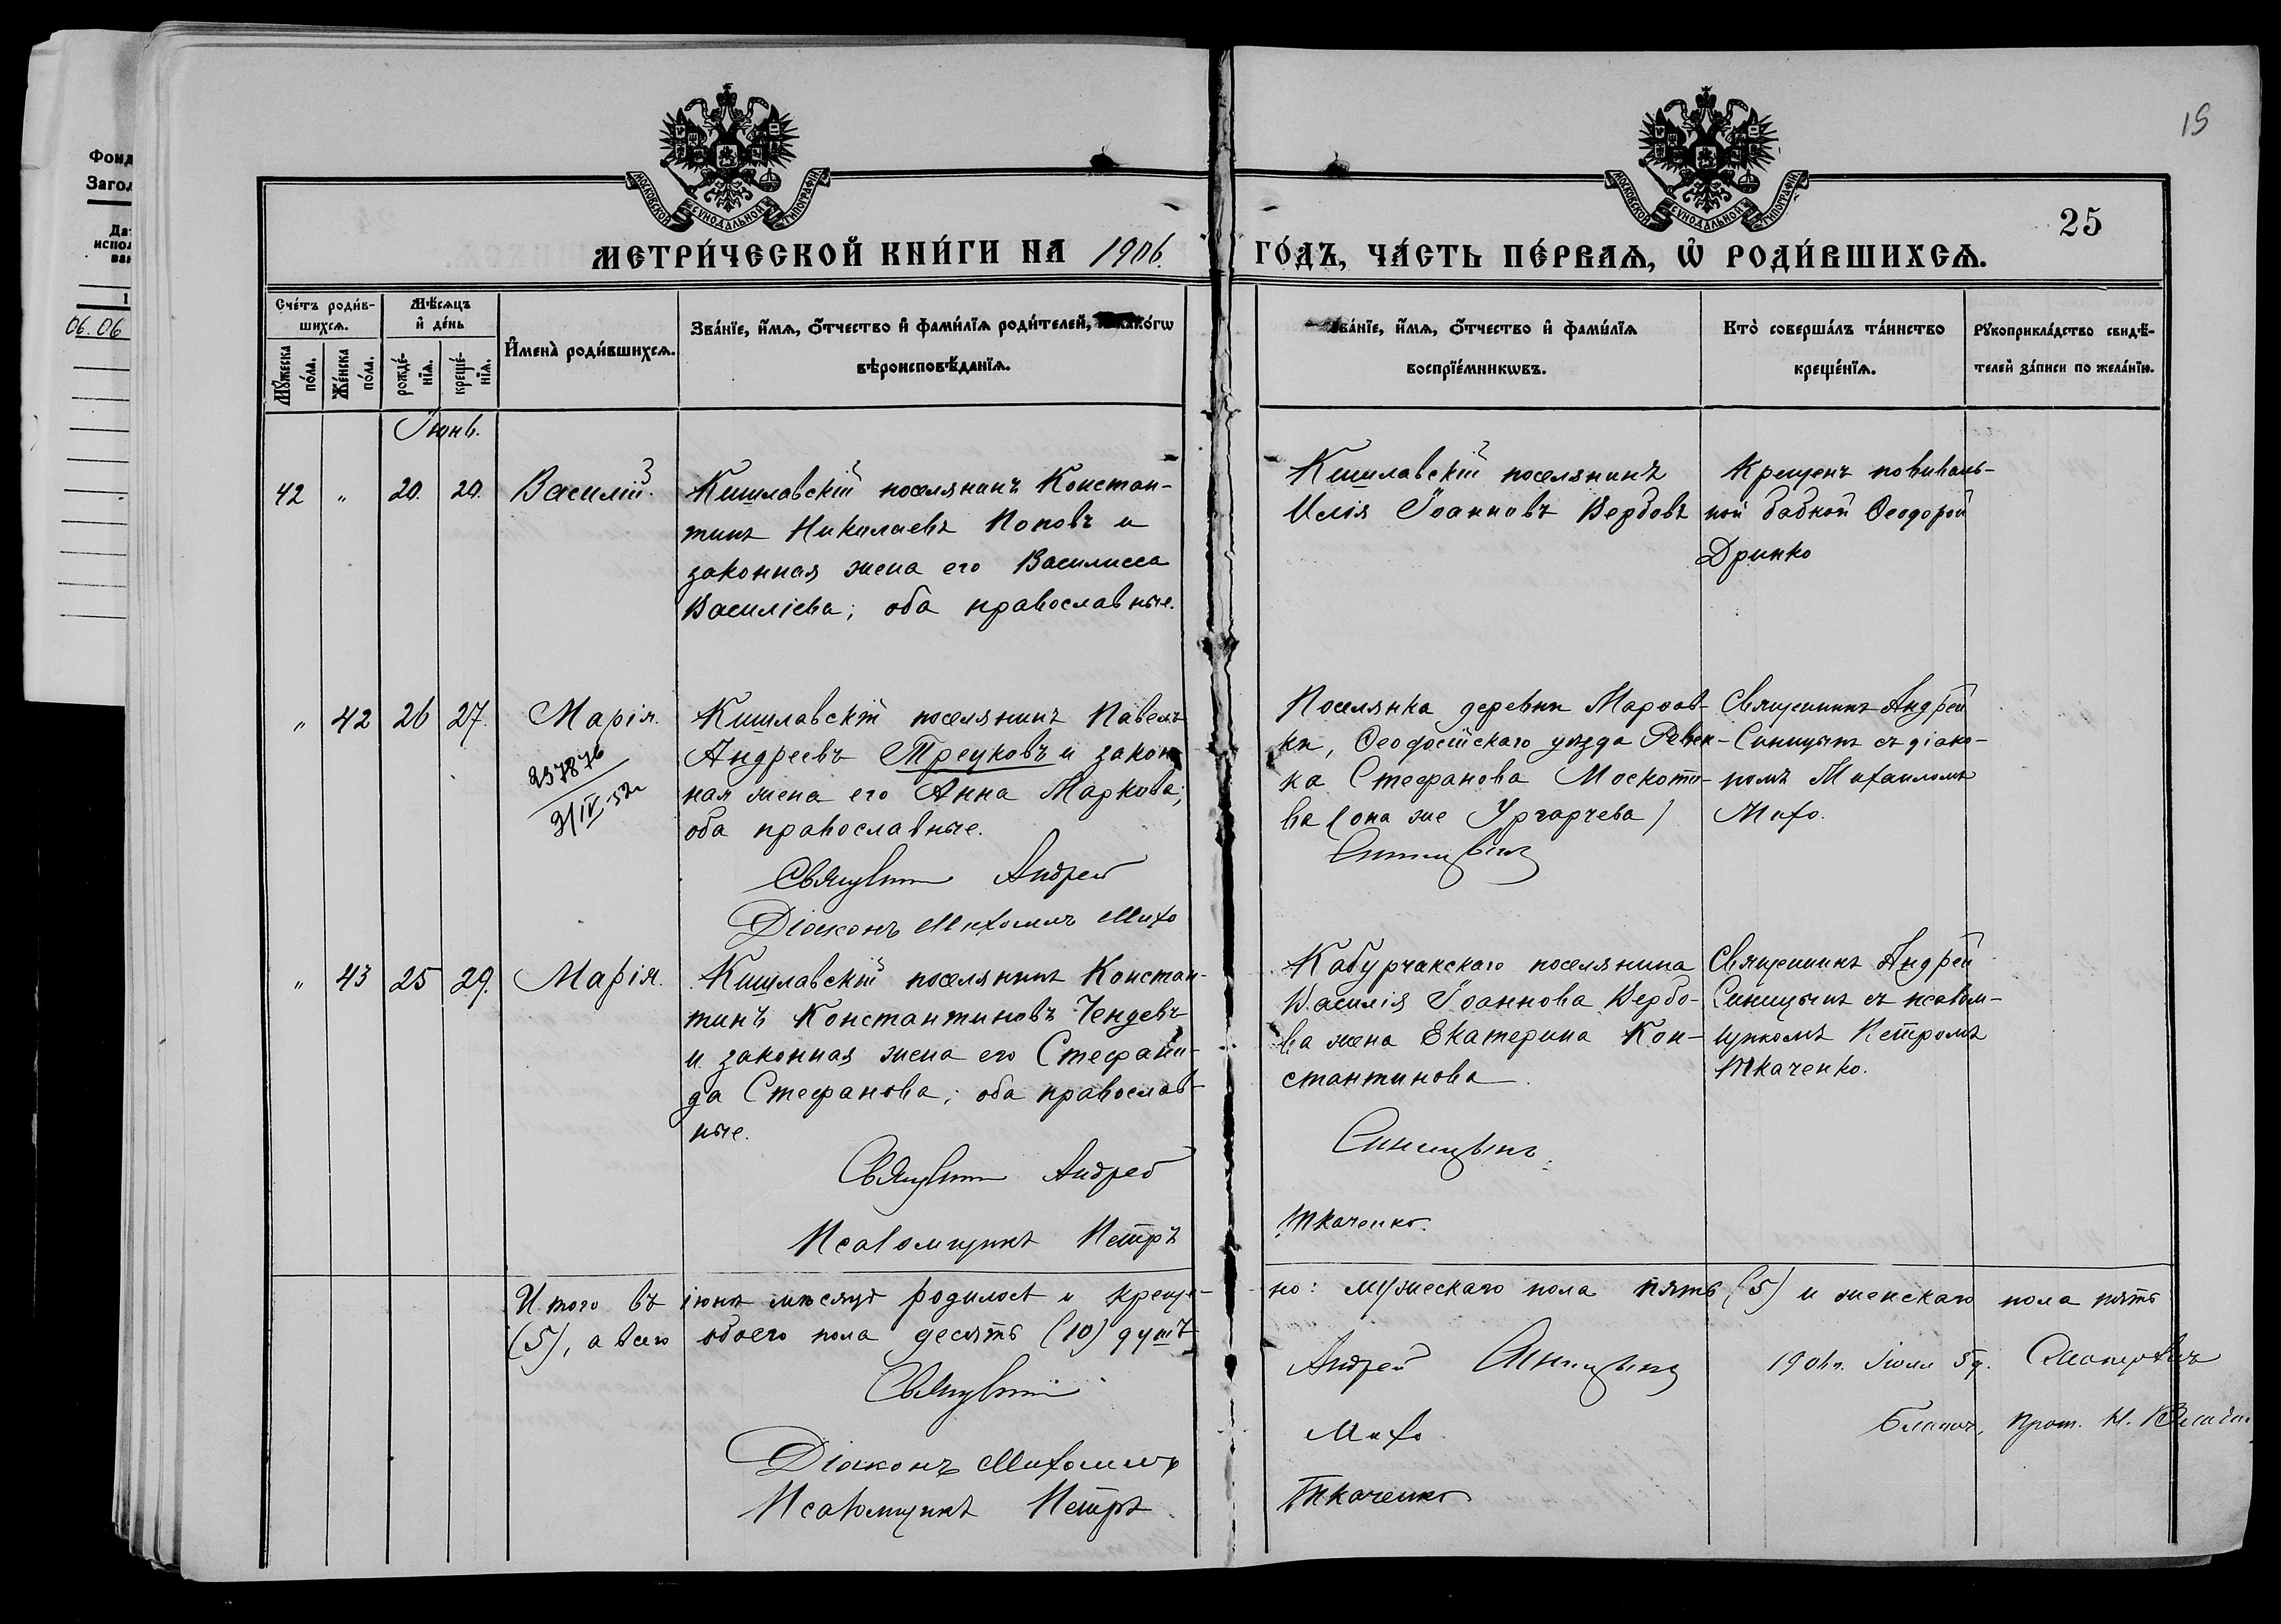 Фонд
Загол
06.06
МОСКОВСКОЙ СУНОДАЛЬНОЙ ТИПОГРАФІИ
МОСКОВСКОЙ СУНОДАЛЬНОЙ ТИПОГРАФІИ
19
25
МЕТРИ́ЧЕСКОЙ КНИ́ГИ НА 1906. ГО́ДЪ, ЧА́СТЬ ПЕ́РВАѦ, Ѿ РОДИ́ВШИХСѦ.
Сче́тъ роди́в-
шихсѧ.
Мꙋ́жеска по́ла.
Же́нска по́ла.
Мѣ́сѧцъ
и҆ де́нь
рожде́-
нїѧ.
креще́-
нїѧ.
И҆мена̀ роди́вшихсѧ.
Зва́нїе, и҆́мѧ, ѻ҆́тчество и҆ фами́лїѧ роди́телей, како́гѡ
вѣроисповѣ́данїѧ.
Зва́нїе, и҆́мѧ, ѻ҆́тчество и҆ фами́лїѧ
воспрїе́мникѡвъ.
Кто̀ соверша́лъ та́инство
креще́нїѧ.
Рꙋкоприкла́дство свидѣ́-
телей за́писи по жела́нїю.
Іюнь.
42 " 20. 20. Василій.
Кишлавскій поселянинъ Констан-
тинъ Николаевъ Поповъ и
законная жена его Василисса
Василіева; оба православные.
Кишлавскій поселянинъ
Илія Іоанновъ Вербовъ
Крещенъ повиваль-
ной бабкой Ѳеодорой
Дринко
" 42 26 27. Марія.
237876
2/IV-52г
Кишлавскій поселянинъ Павелъ
Андреевъ Трецковъ и закон
ная жена его Анна Маркова;
оба православные.
Поселянка деревни Марѳов-
ки, Ѳеодосійскаго уѣзда Ревек-
ка Стефанова Москоти-
ва (она же Ургарчева)
Священникъ Андрей
Синицынъ съ діако-
номъ Михаиломъ
Михо.
Священникъ Андрей Синицынъ
Діаконъ Михаилъ Михо
" 43 25 29. Марія.
Кишлавскій поселянинъ Констан-
тинъ Константиновъ Чендевъ
и законная жена его Стефани-
да Стефанова; оба православ-
ные.
Кабурчакского поселянина
Василія Іоаннова Вербо-
ва жена Екатерина Кон-
стантинова
Священникъ Андрей
Синицынъ съ псалом-
щикомъ Петромъ
Ткаченко.
Священникъ Андрей Синицынъ.
Псаломщикъ Петръ Ткаченко.
Итого въ іюнѣ мѣсяцѣ родилось и креще-
но: мужескаго пола пять (5) и женскаго пола пять
(5), а всего обоего пола десять (10) душъ
Священникъ Андрей Синицынъ
Діаконъ Михаилъ Михо
Псаломщикъ Петръ Ткаченко
1906г. Іюля 5 д.
Благоч. прот. Н.